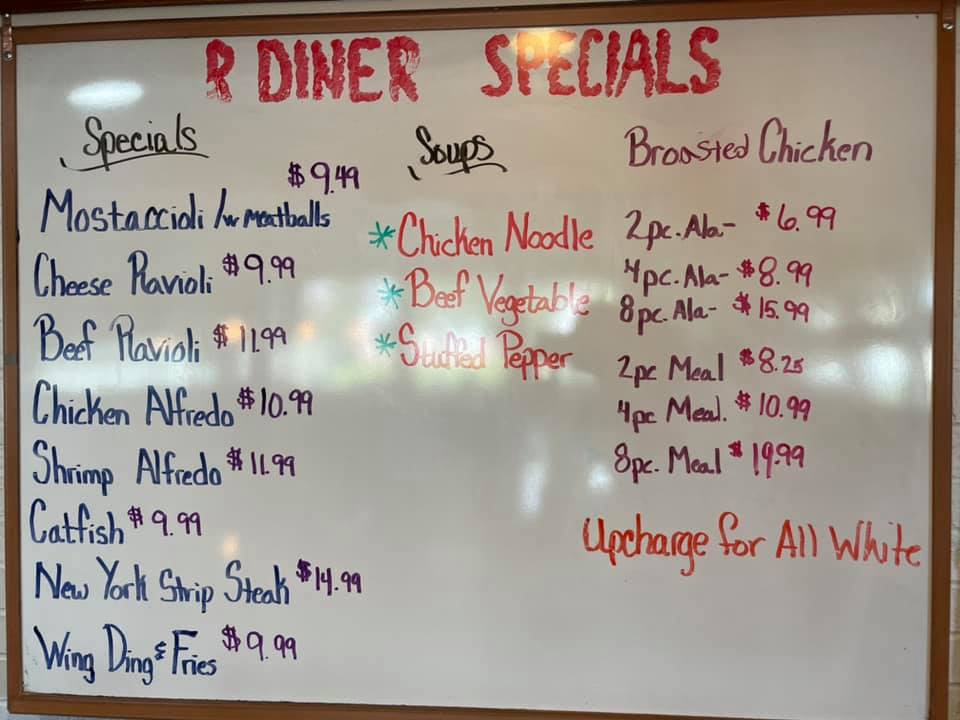 R DINER SPECIALS
Specials
$9.49
Mostaccioli /w meatballs
Cheese Ravioli $9.99
Beef Ravioli $11.99
Chicken Alfredo $10.99
Shrimp Alfredo $11.99
Catfish $9.99
New York Strip Steak $14.99
Wing Ding & Fries $9.99
Soups
*Chicken Noodle
*Beef Vegetable
*Stuffed Pepper
Broasted Chicken
2pc. Ala- $6.99
4pc. Ala- $8.99
8pc. Ala- $15.99
2pc Meal $8.25
4pc Meal. $10.99
8pc. Meal $19.99
Upcharge for All White